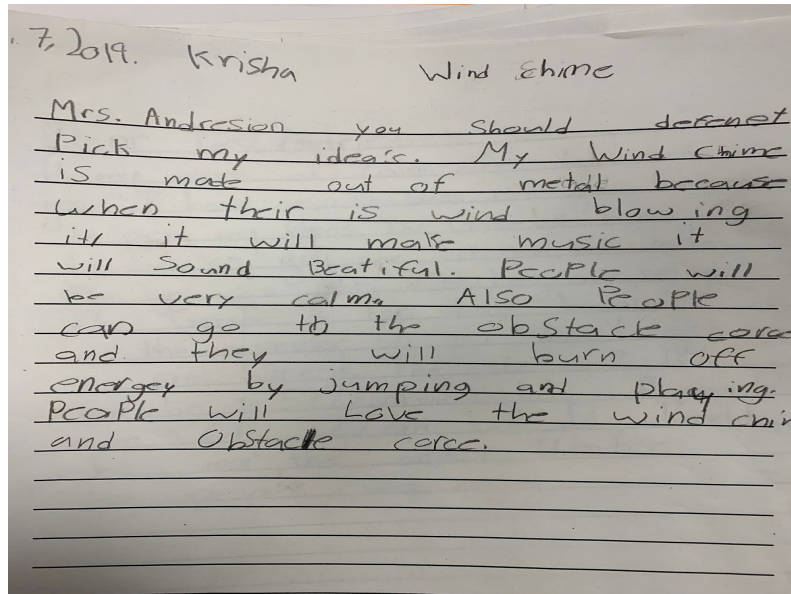 7, 2019. Krisha Wind Chime
Mrs. Andresion you should defenet
Pick my idea's. My Wind Chime
is made out of metal because
when their is wind blowing
it it will make music it
will Sound Beatiful. People will
be very calm. Also People
can go to the obstacle corce
and they will burn off
energey by jumping and playing.
People will Love the wind chi
and Obstacle corce.